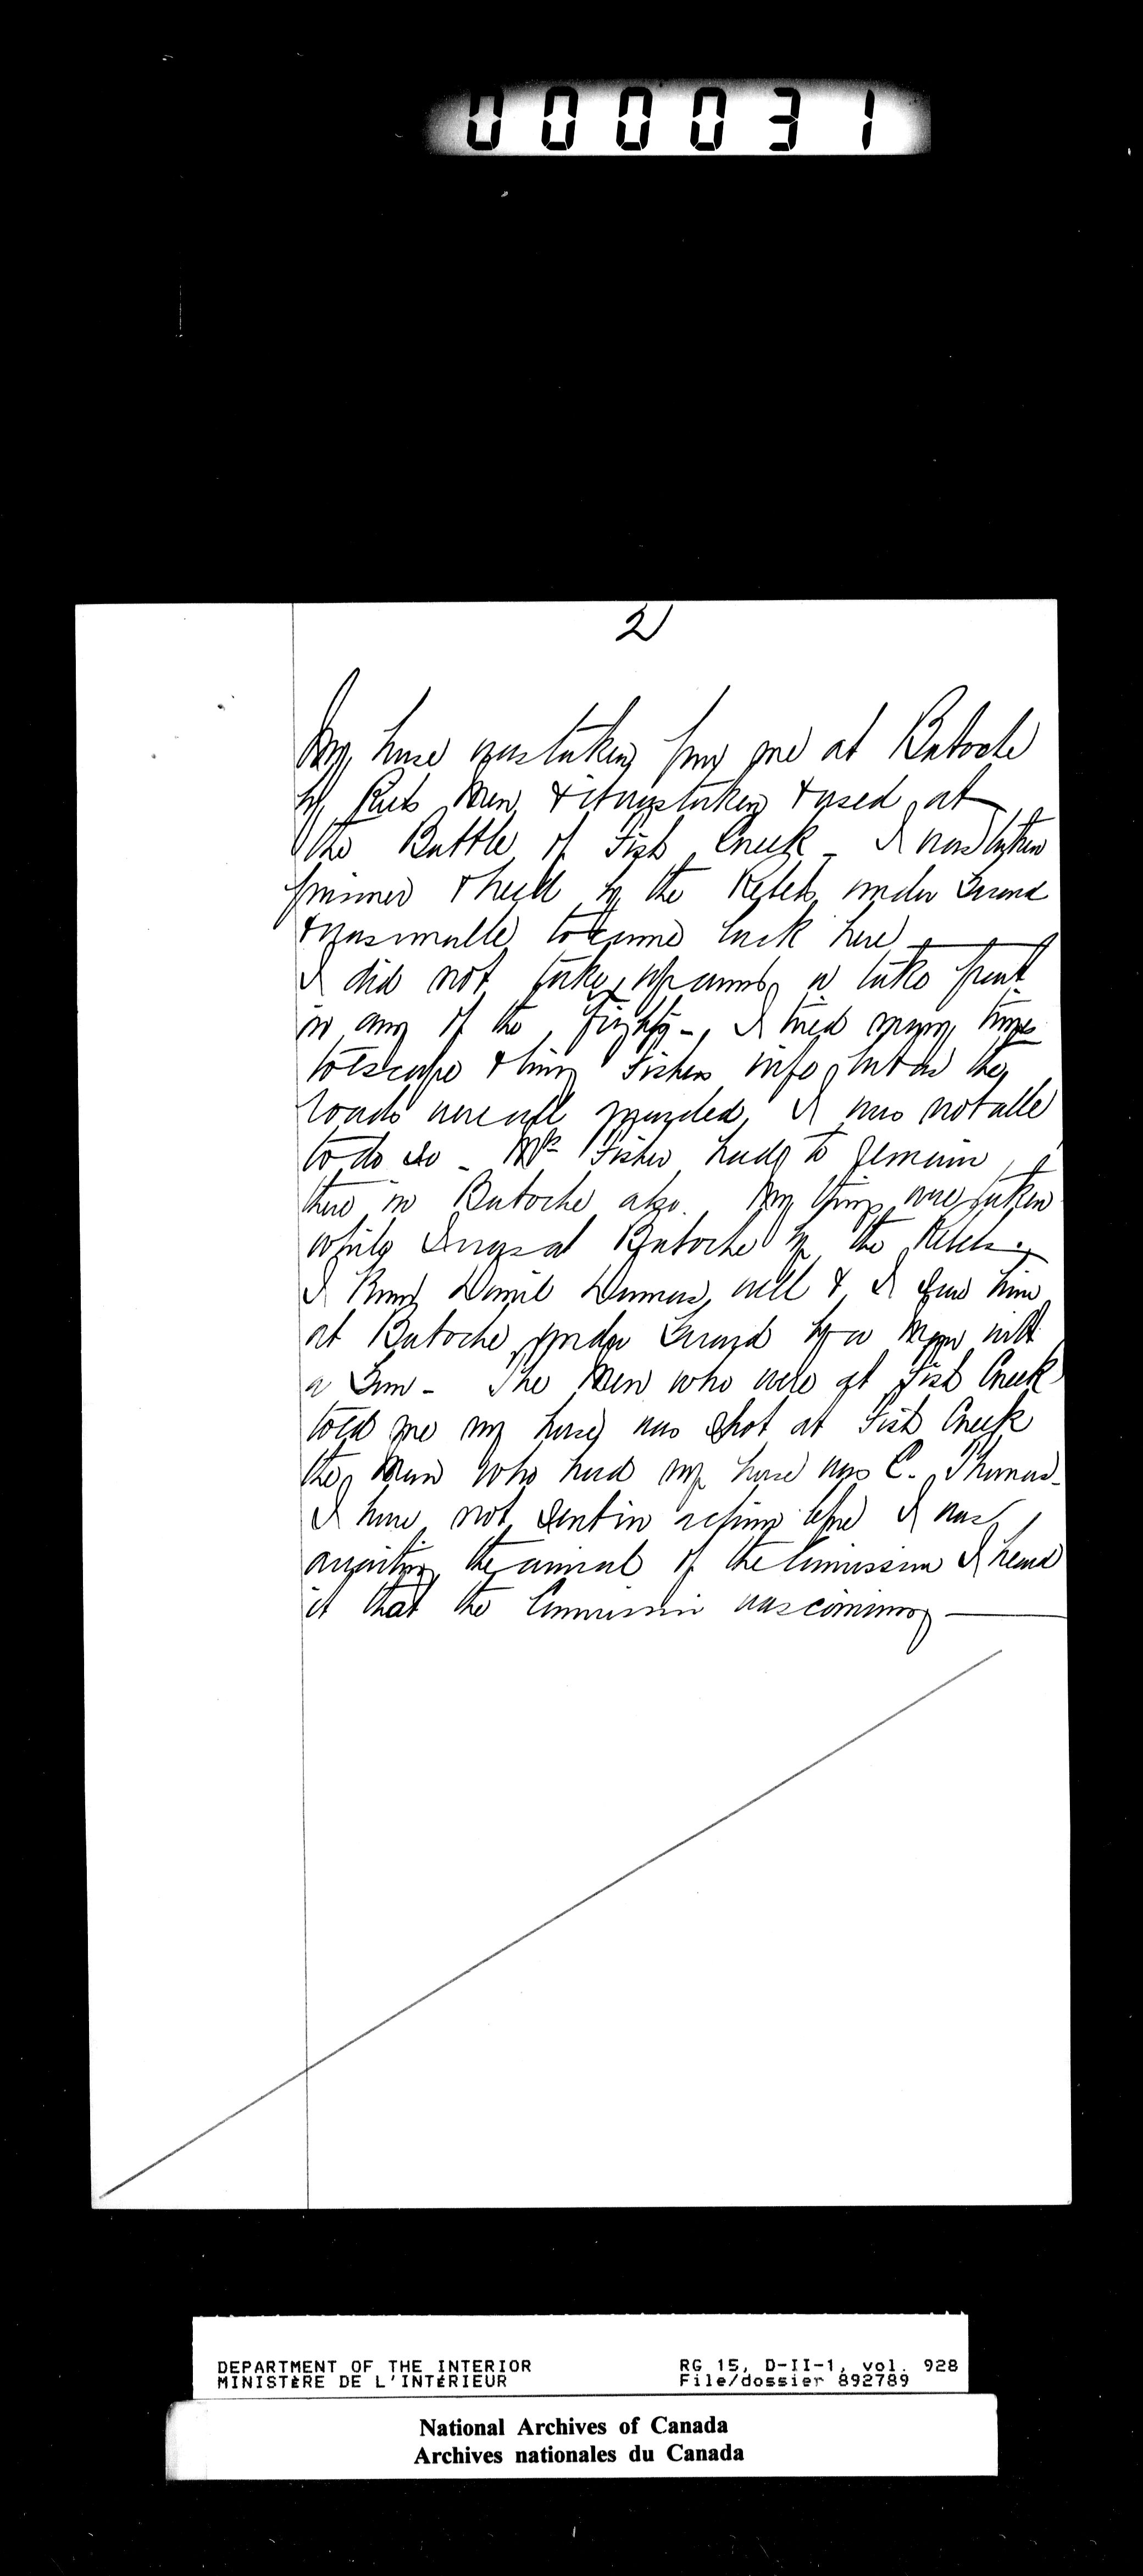 000031
2
My horse was taken from me at Batoche
by Riels Men, & it was taken & used at
the Battle of Fish Creek - I was taken
prisoner & held by the Rebels under Guard
& was unable to come back here
I did not take up arms, or take part
in any of the fights -, I tried many times
to escape & bring Fishers wife, but as the
roads were all guarded, I was not able
to do so - Mr Fisher had to remain
there in Batoche also. My things were taken
while I was at Batoche by the Rebels.
I know Daniel Dumas, well & I saw him
at Batoche, under Guard by a Man with
a Gun - The Men who were at Fish Creek
told me my horse was shot at Fish Creek
the, Man who had my horse was C. Thomas.
I have not sent in before I was
awaiting the arrival of the Commission I heard
it that the Commission was coming
DEPARTMENT OF THE INTERIOR RG 15, D-II-1, vol. 928
MINISTÈRE DE L'INTÉRIEUR File/dossier 892789
National Archives of Canada
Archives nationales du Canada